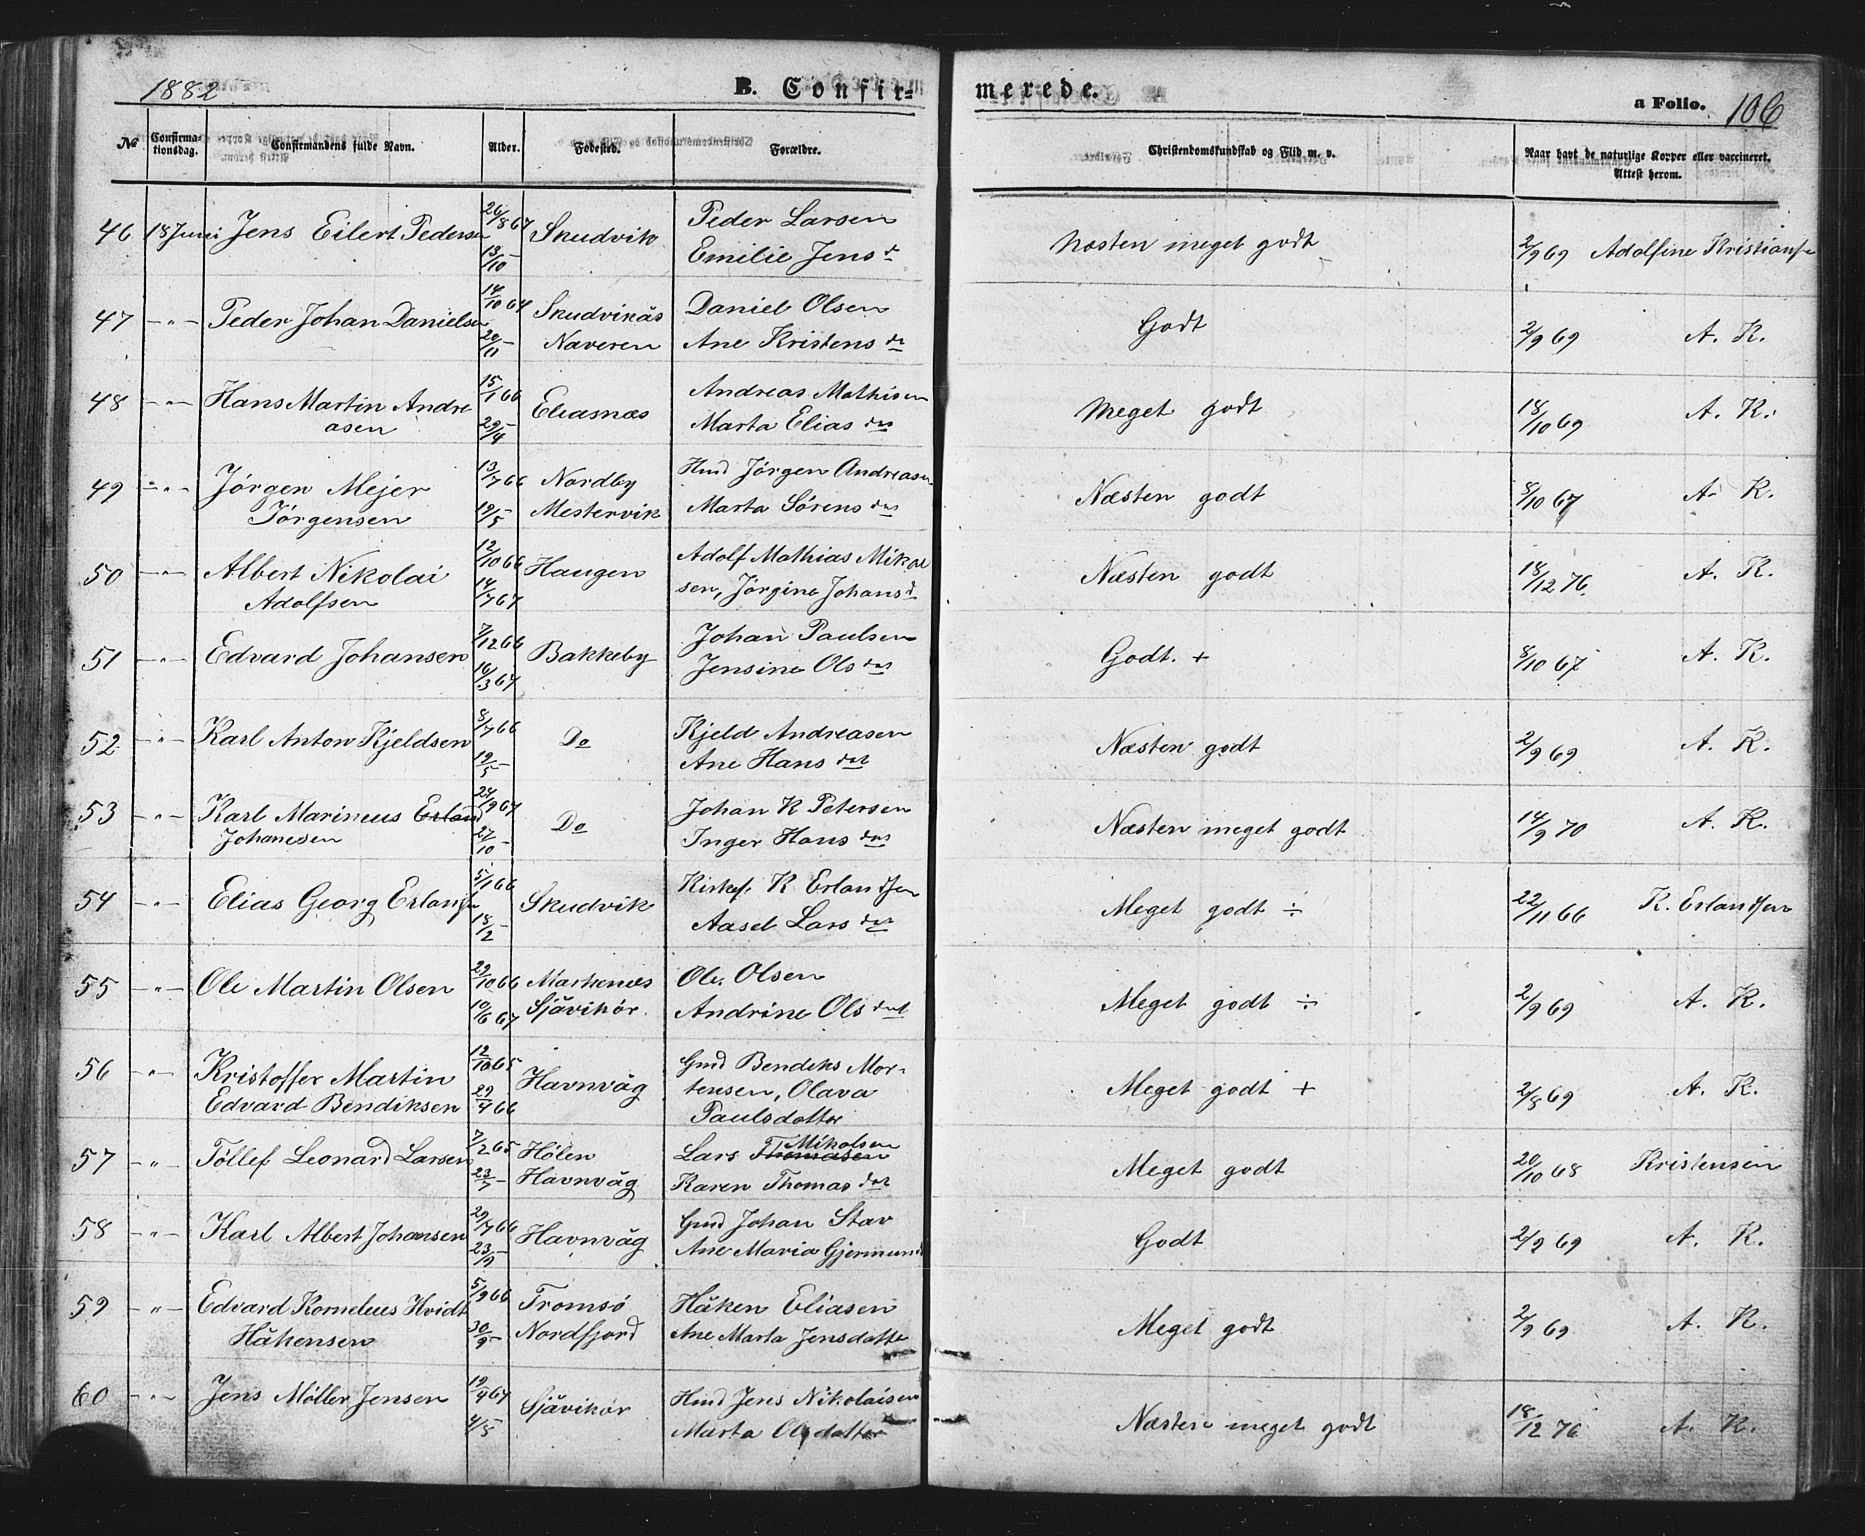 1882 B. Confir= merede. a Folio. 106
No Confirma-tionsdag. Confirmandens fulde Navn. Alder. Fødested. Forældre. Christendomskundskab og Flid m. v. Naar havt de naturlige Kopper eller vaccineret. Attest herom.
46 18 Juni Jens Eilert Pedersen 26/8 67 Skudvik Peder Larsen Næsten meget godt 2/9 69 Adolfine Kristians
13/10 - Emilie Jens d
47 -"- Peder Johan Danielsen 14/10 64 Skudvikås Daniel Olsen Godt 2/9 69 A. K.
20/11 - Naveren Ane Kristens da
48 -"- Hans Martin Andre 15/1 66 Eliasnæs Andreas Mathisen Meget godt 18/10 69 A. K.
asen 29/4 - Marta Elias das
49 -"- Jørgen Mejer 13/7 66 Nordby Hmd Jørgen Andreasen Næsten godt 8/10 67 A. K.
Jørgensen 19/5 - Mestervik Marta Sørens das
50 -"- Albert Nikolai 12/10 66 Haugen Adolf Mathias Mikal Næsten godt 18/12 76 A. K.
Adolfsen 14/7 67 sen, Jørgine Johans d
51 -"- Edvard Johansen 7/12 66 Bakkeby Johan Paulsen Godt. + 8/10 67 A. K.
16/3 67 Jensine Ols das
52 -"- Karl Anton Kjeldsen 8/7 66 Do Kjeld Andreasen Næsten godt 2/9 69 A. K.
19/5 - Ane Hans dat
53 -"- Karl Marineus Erland 24/9 67 Do Johan K Petersen Næsten meget godt 14/9 70 A. K.
Johanesen 27/10 - Inger Hans das
54 -"- Elias Georg Erlands 5/1 66 Skudvik Kirkes. K Erlandsen Meget godt ÷ 22/11 66 K. Erlandsen
18/2 - Aasel Lars dat
55 -"- Ole Martin Olsen 29/10 66 Markenæs Ole Olsen Meget godt ÷ 2/9 69 A. K.
10/6 67 Sjåvikør Andrine Ols dat
56 -"- Kristoffer Martin 12/10 65 Havnvåg Gmd Bendiks Mor- Meget godt + 2/8 69 A. K.
Edvard Bendiksen 29/4 66 tensen, Olava
Paulsdatter
57 -"- Tøllef Leonard Larsen 7/2 65 Hølen Lars Thomasen Mikalsen Meget godt 20/10 68 Kristensen
23/7 - Havnvåg Karen Thomas dat
58 -"- Karl Albert Johansen 29/7 66 Havnvåg Gmd Johan Stav Godt 2/9 69 A. K.
23/9 - Ane Maria Gjermund
59 -"- Edvard Kornelius Hvidt 5/9 66 Tromsø Håken Eliasen Meget godt 2/9 69 A. K.
Håkensen 30/9 - Nordfjord Ane Marta Jensdatte
60 -"- Jens Møller Jensen 19/4 67 Sjåvikør Hmd Jens Nikolaisen Næsten meget godt 18/12 76 A. K.
4/8 Marta Olsdatter